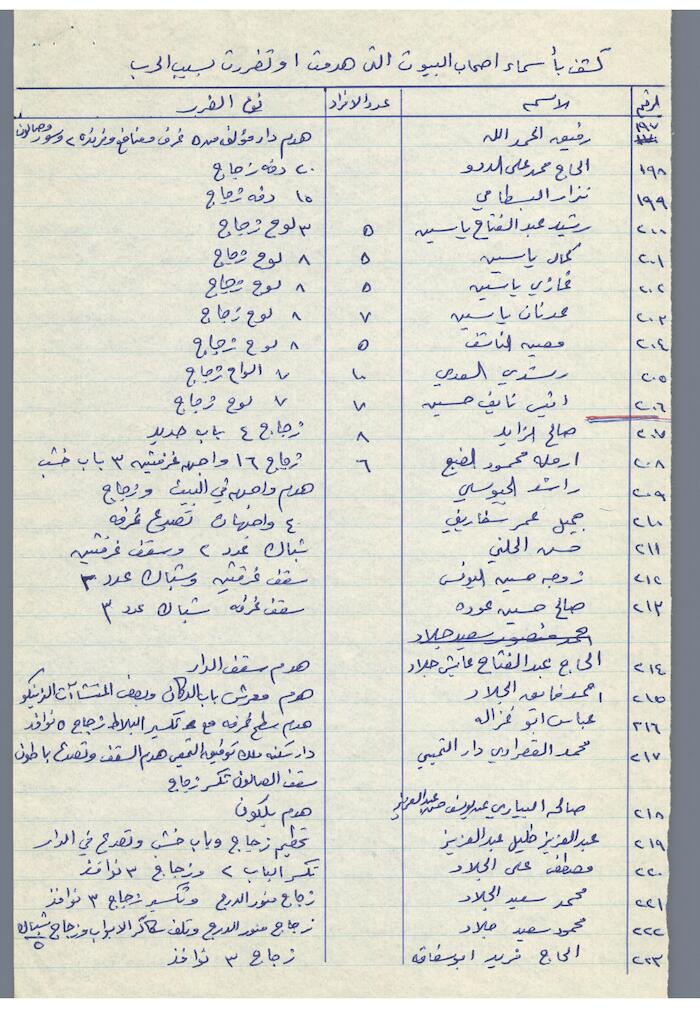 كشف بأسماء اصحاب البيوت التي هدمت او تضررت بسبب الحرب
الرقم الاسم عدد الافراد نوع الضرر
١٩٧ رفيق الحمد الله هدم دار مؤلف من ٥ غرف ومنافع ٢ وسور وصالون
١٩٨ الحاج محمد علي ٢٠ دفه زجاج
١٩٩ نزار البسطامي ١٥ دفه زجاج
٢٠٠ رشيد عبد الفتاح ياسين ٥ ٣ لوح زجاج
٢٠١ كمال ياسين ٥ ٨ لوح زجاج
٢٠٢ غازي ياسين ٥ ٨ لوح زجاج
٢٠٣ عدنان ياسين ٧ ٨ لوح زجاج
٢٠٤ الناشف ٥ ٨ لوح زجاج
٢٠٥ رشدي السعدي ١٠ ٧ الواح زجاج
٢٠٦ انيس نايف حسين ٧ ٧ لوح زجاج
٢٠٧ صالح الزايد ٨ زجاج ٤ باب حديد
٢٠٨ ارمله محمود الضبع ٦ زجاج ١٦ واجهه غرفتين ٣ باب خشب
٢٠٩ راشد الجيوسي هدم واجهه في البيت وزجاج
٢١٠ جميل عمر سفاريني ٤ واجهات تصدع غرفه
٢١١ حسن الحلني شباك عدد ٢ وسقف غرفتين
٢١٢ زوجه حسين اليونس سقف غرفتين وشباك عدد ٣
٢١٣ صالح حسين عوده سقف غرفه شباك عدد ٣
محمد منصور سعيد جلاد
٢١٤ الحاج عبد الفتاح عايش جلاد هدم سقف الدار
٢١٥ احمد فايق الجلاد هدم معرش باب الدكان وبعض المنشآت الزينكو
٢١٦ عباس ابو غزاله هدم سطح غرفه مع تكسير البلاط زجاج ٥ نوافذ
٢١٧ محمد القصراوي دار التميمي دار سكنه ملك توفيق التميمي هدم السقف وتصدع باطون
سقف الصالون تكسر زجاج
٢١٨ صالحه البياري عبد العزيز هدم بلكون
٢١٩ عبد العزيز خليل عبد العزيز تحطيم زجاج وباب خشب وتصدع في الدار
٢٢٠ مصطفى علي الجلاد تكسر الباب ٢ وزجاج ٣ نوافذ
٢٢١ محمد سعيد الجلاد زجاج منور الدرج وتكسير زجاج ٣ نوافذ
٢٢٢ محمود سعيد جلاد زجاج منور الدرج وتلف الابواب وزجاج ٥ شباك
٢٢٣ الحاج فريد ابو سفاقه زجاج ٣ نوافذ